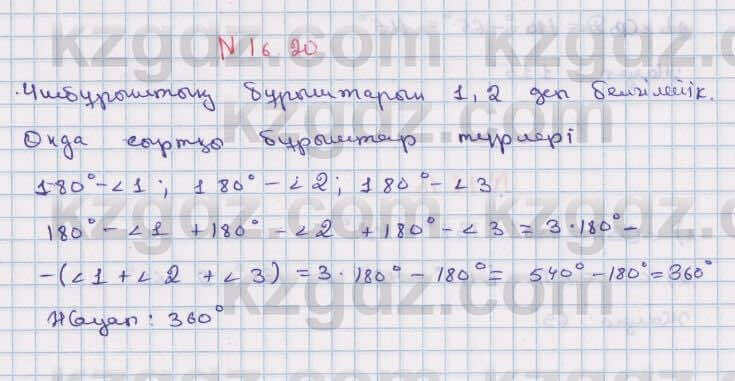 N 16.20
Үшбұрыштың бұрыштарын 1, 2 деп белгілейік.
Онда сыртқы бұрыштар түрлері
180° - ∠1; 180° - ∠2; 180° - ∠3
180° - ∠1 + 180° - ∠2 + 180° - ∠3 = 3·180° -
-(∠1 + ∠2 + ∠3) = 3·180° - 180° = 540° - 180° = 360°
Жауап: 360°
kzgdz.com